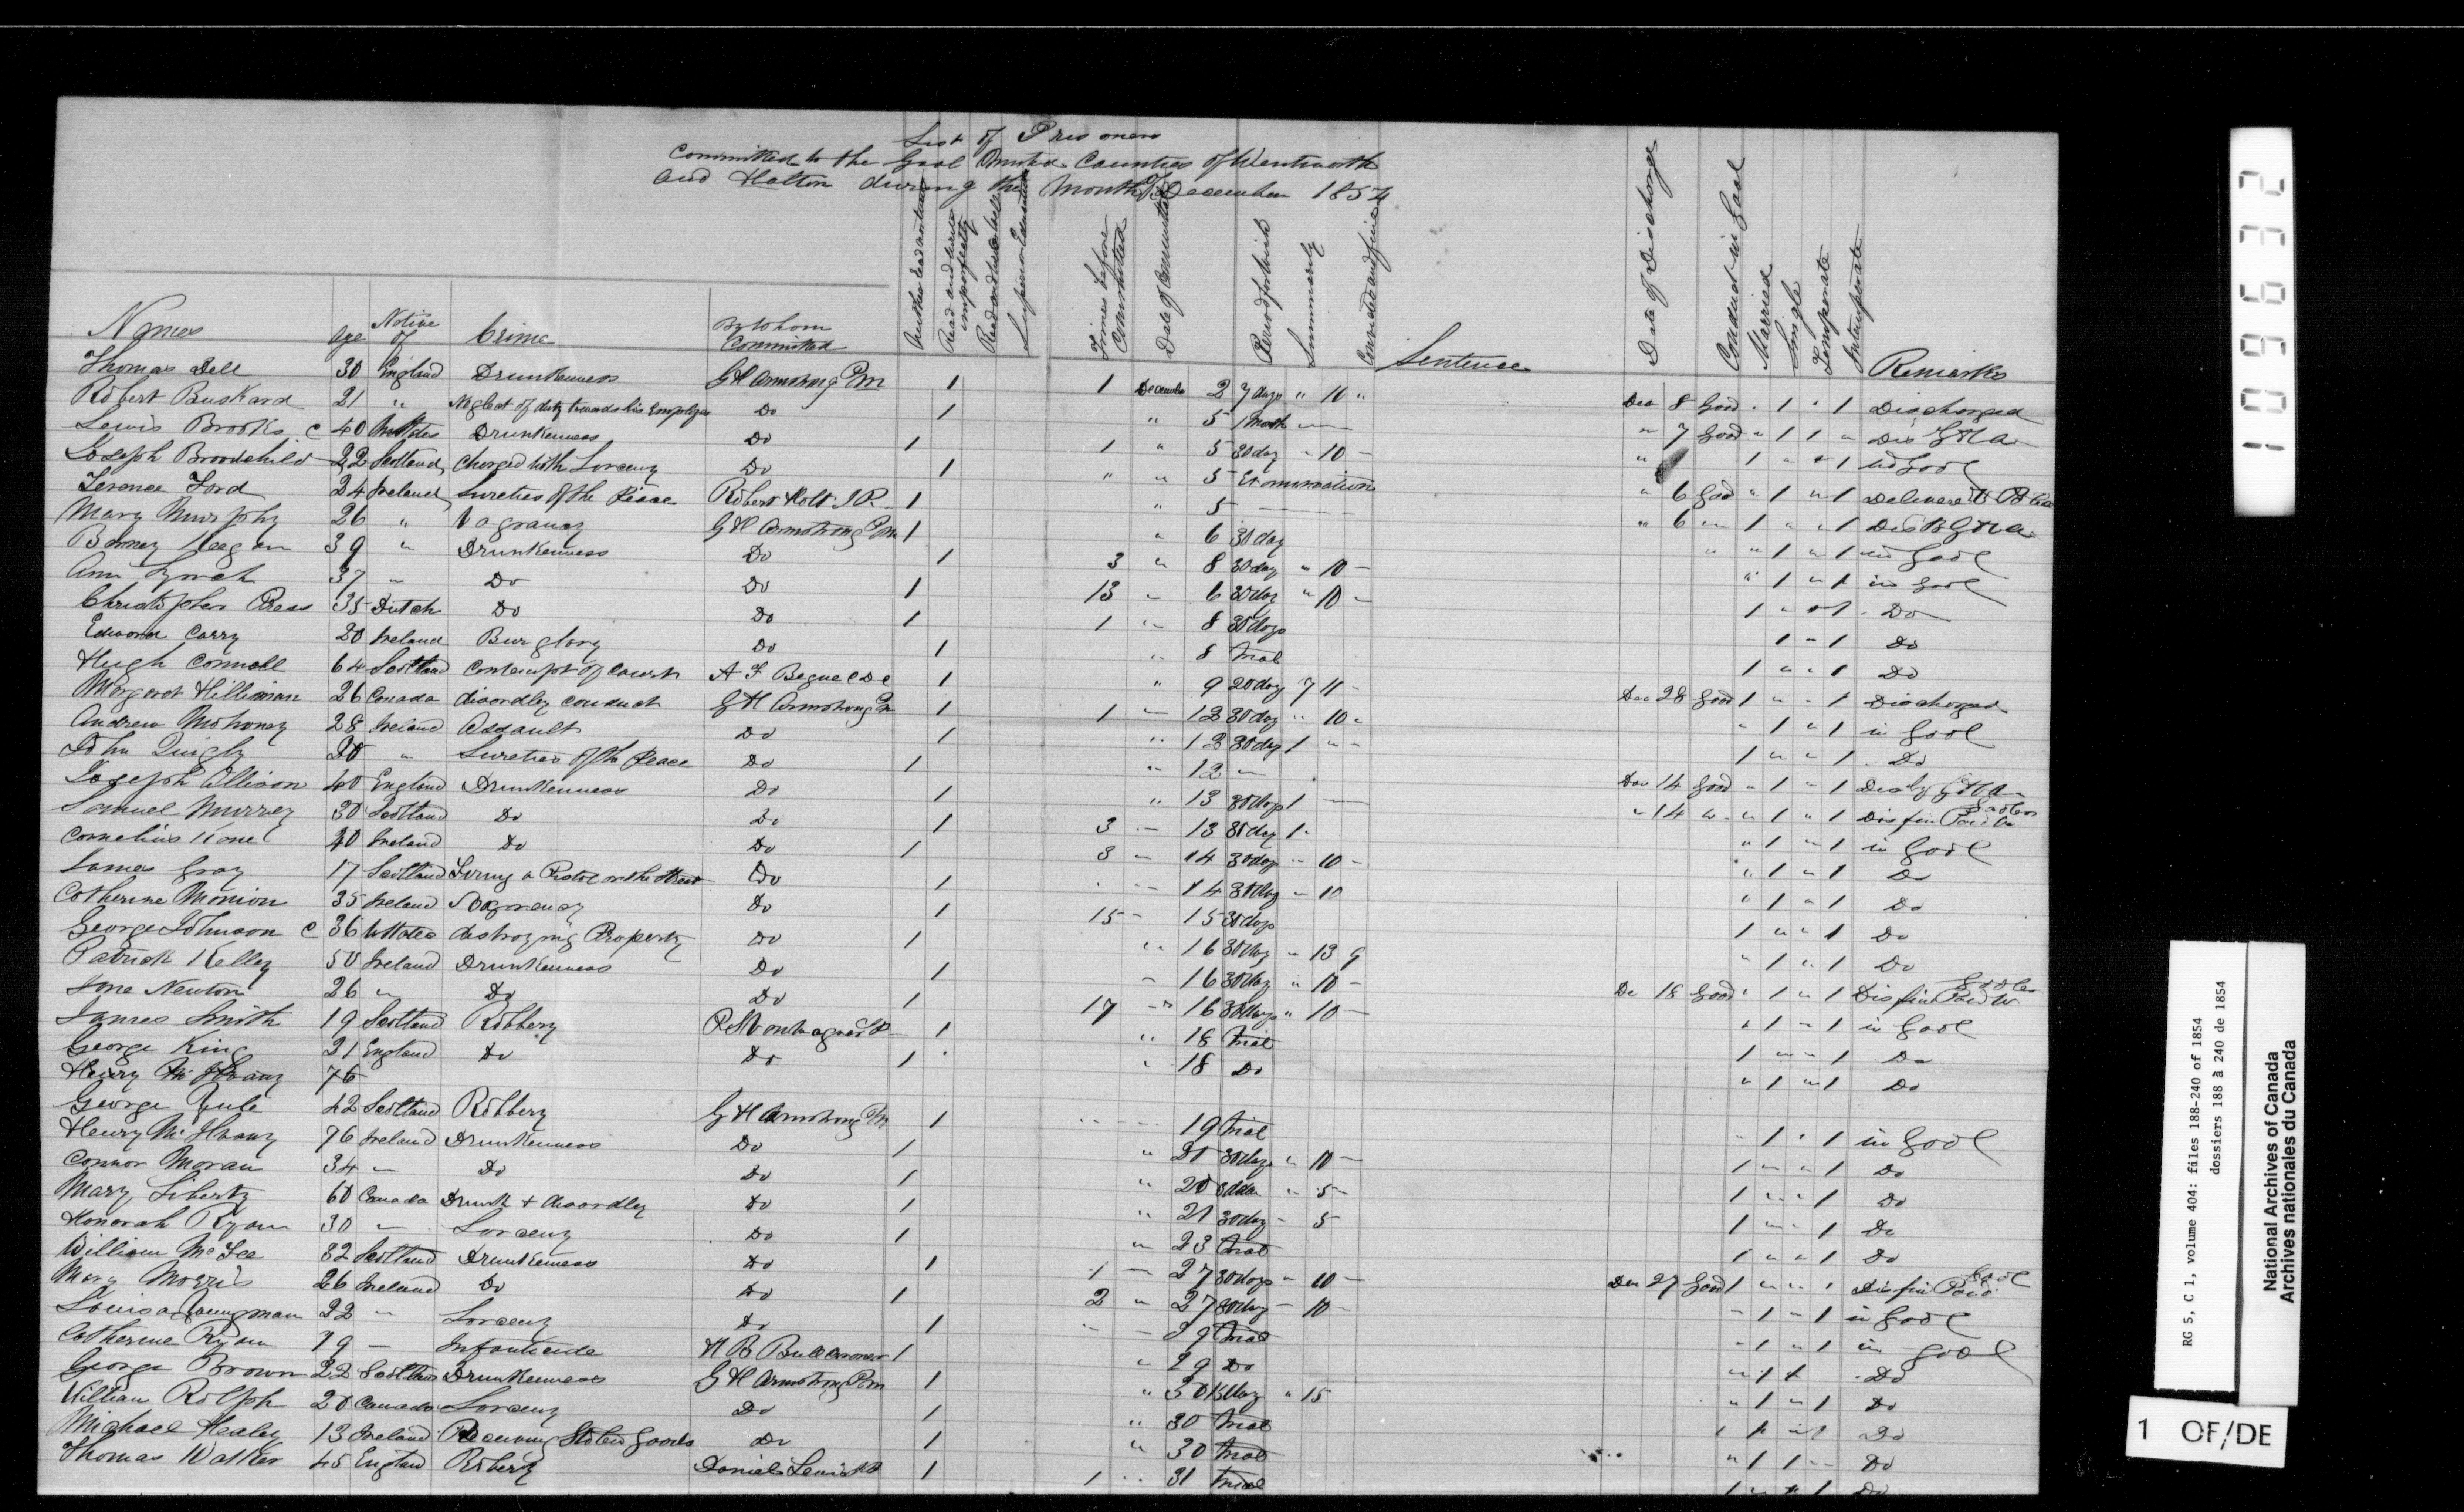 List of Prisoners
Committed to the Gaol United Counties of Wentworth
and Halton during the Month of December 1854
Names Age Native of Crime By Whom Committed Neither read nor write Read and write imperfectly Read and write well Superior Education Times before Committed Date of Commitment Period for which Summarily Convicted and fined Sentence Date of Discharge Conduct in Gaol Married Single Temperate Intemperate Remarks
Thomas Dell 30 England Drunkenness G H Armstrong PM 1 1 December 2 7 days " 10 " Dec 8 Good " 1 " 1 Discharged
Robert Buskard 21 " Neglect of duty towards his Do 1 " 5 1 Month " 7 Good " 1 1 " Dis G H A
Lewis Brooks c 40 Drunkenness Do 1 1 " 5 30 day " 10 " 1 " 1 Gaol
Joseph 22 Scotland Charged with Larceny Do 1 " " 5 Examination " 6 Good " 1 " 1
Terence Ford 24 Ireland Sureties of the Peace Robert Holt J P. 1 " 5 " 6 " 1 " " 1
Mary Murphy 26 " Vagrancy G H Armstrong PM 1 " 6 30 day " " 1 " 1 Gaol
Barney Keegan 39 " Drunkenness Do 1 3 " 8 30 day " 10 " 1 " 1 in Gaol
Ann Lynch 37 " Do Do 1 13 " 6 30 day " 10 1 " 1 Do
Christopher 35 Dutch Do Do 1 1 " 8 30 days 1 " 1 Do
Edward Carry 20 Ireland Burglary Do 1 " 8 Trial 1 " " 1 Do
Hugh Connell 64 Scotland Contempt of Court A F Begue C D C 1 " 9 20 day 7 11 Dec 28 Good 1 " " 1 Discharged
Margaret 26 Canada disordley conduct G H Armstrong PM 1 1 " 12 30 day " 10 " " 1 " 1 in Gaol
Andrew Mohoney 28 Ireland Assault Do 1 " 12 30 day 1 " 1 " " 1 Do
John Quigly 20 " Sureties of the Peace Do 1 " 12 " Dec 14 Good " 1 " 1 Dis by G H A
Joseph Ellison 40 England Drunkenness Do 1 " 13 30 days 1 " 14 " " 1 " 1 Dis fine Paid to Gaoler
Samuel Murrey 30 Scotland Do Do 1 3 13 30 day 1 " 1 " 1 in Gaol
Cornelius Kane 40 Ireland Do Do 1 3 14 30 days " 10 " 1 " 1 Do
James Gray 17 Scotland Firing a Pistol on the Street Do 1 14 30 day " 10 " 1 " 1 Do
Catherine 35 Ireland Vagrancy Do 1 15 15 30 days 1 " " 1 Do
George Johnson c 36 destroying Property Do 1 " 16 30 day " 13 9 " 1 " 1 Do
Patrick Kelley 50 Ireland Drunkenness Do 1 16 30 day " 10 De 18 Good " 1 " 1 Dis fine Paid to Gaoler
Jane Newton 26 " Do Do 1 17 " 16 30 days " 10 " 1 " 1 in Gaol
James Smith 19 Scotland Robbery 1 " 18 Trial 1 " " 1 Do
George King 21 England Do Do 1 " 18 Do " 1 " 1 Do
Henry 76
George Yule 42 Scotland Robbery G H Armstrong PM 1 19 Trial " 1 " 1 in Gaol
Henry 76 Ireland Drunkenness Do 1 " 20 30 days " 10 1 " " 1 Do
Connor Moran 34 " Do Do 1 " 20 " 5 1 " " 1 Do
Mary Liberty 60 Canada Drunk + disordley Do 1 " 21 30 day " 5 1 " 1 Do
Honorah Ryan 30 " Larceny Do 1 " 23 Trial 1 " " 1 Do
William McFee 32 Scotland Drunkenness Do 1 1 27 30 days " 10 Dec 27 Good 1 " " 1 Dis fine Paid
Mary Morris 26 Ireland Do Do 1 2 " 27 30 day 10 " 1 " 1 in Gaol
Louisa Youngman 22 " Larceny Do 1 29 Trial " 1 " 1 in Gaol
Catherine Ryan 19 Infanticide H B Bull Coroner 1 " 29 Do " 1 1 Do
George Brown 22 Drunkenness G H Armstrong PM 1 " 30 " 15 " 1 " 1 Do
William Rolph 20 Canada Larceny Do 1 " 30 Trial Do
Michael Healey 13 Ireland Receiving Stolen Goods Do 1 " 30 Trial " 1 1 Do
Thomas Walker 45 England Robery Daniel Lewis 1 1 31 Trial Do
109632
RG 5, C 1, volume 404: files 188-240 of 1854
dossiers 188 à 240 de 1854
National Archives of Canada
Archives nationales du Canada
1 OF/DE